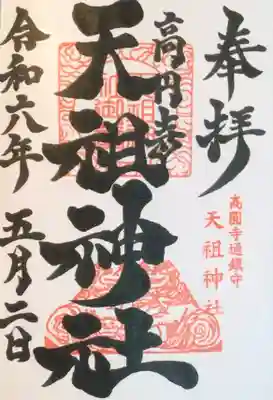 奉拝
高円寺
天祖神社
高圓寺通鎮守
天祖神社
令和六年 五月二日